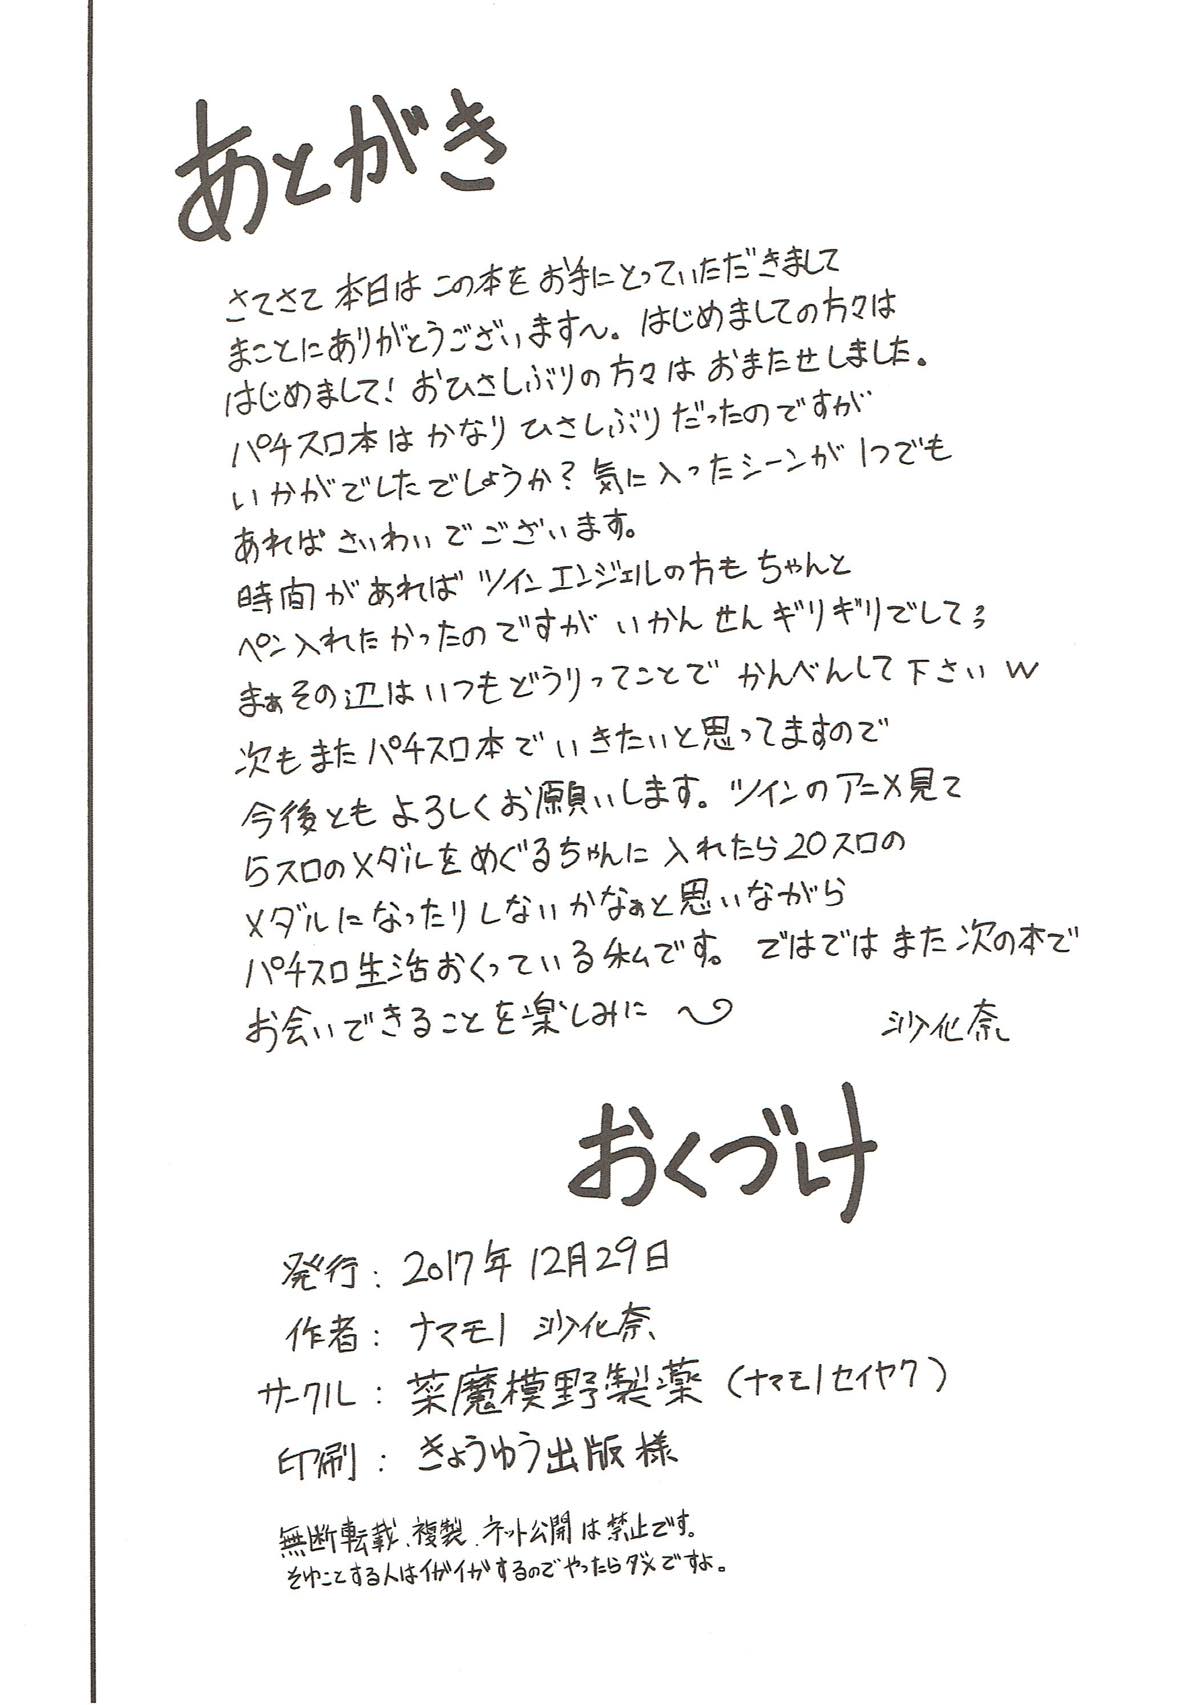 あとがき
さてさて本日はこの本をお手にとっていただきまして
まことにありがとうございます～。はじめましての方々は
はじめまして！おひさしぶりの方々はおまたせしました。
パチスロ本はかなりひさしぶりだったのですが
いかがでしたでしょうか？気に入ったシーンが1つでも
あればさいわいでございます。
時間があればツインエンジェルの方もちゃんと
ペン入れたかったのですがいかんせんギリギリでして
まぁその辺はいつもどうりってことでかんべんして下さいw
次もまたパチスロ本でいきたいと思ってますので
今後ともよろしくお願いします。ツインのアニメ見て
5スロのメダルをめぐるちゃんに入れたら20スロの
メダルになったりしないかなぁと思いながら
パチスロ生活おくっている私です。ではではまた次の本で
お会いできることを楽しみに～
沙化奈
おくづけ
発行：2017年12月29日
作者：ナマモノ 沙化奈
サークル：菜魔模野製薬（ナマモノセイヤク）
印刷：きょうゆう出版様
無断転載、複製、ネット公開は禁止です。
そゆことする人はイガイガするのでやったらダメですよ。